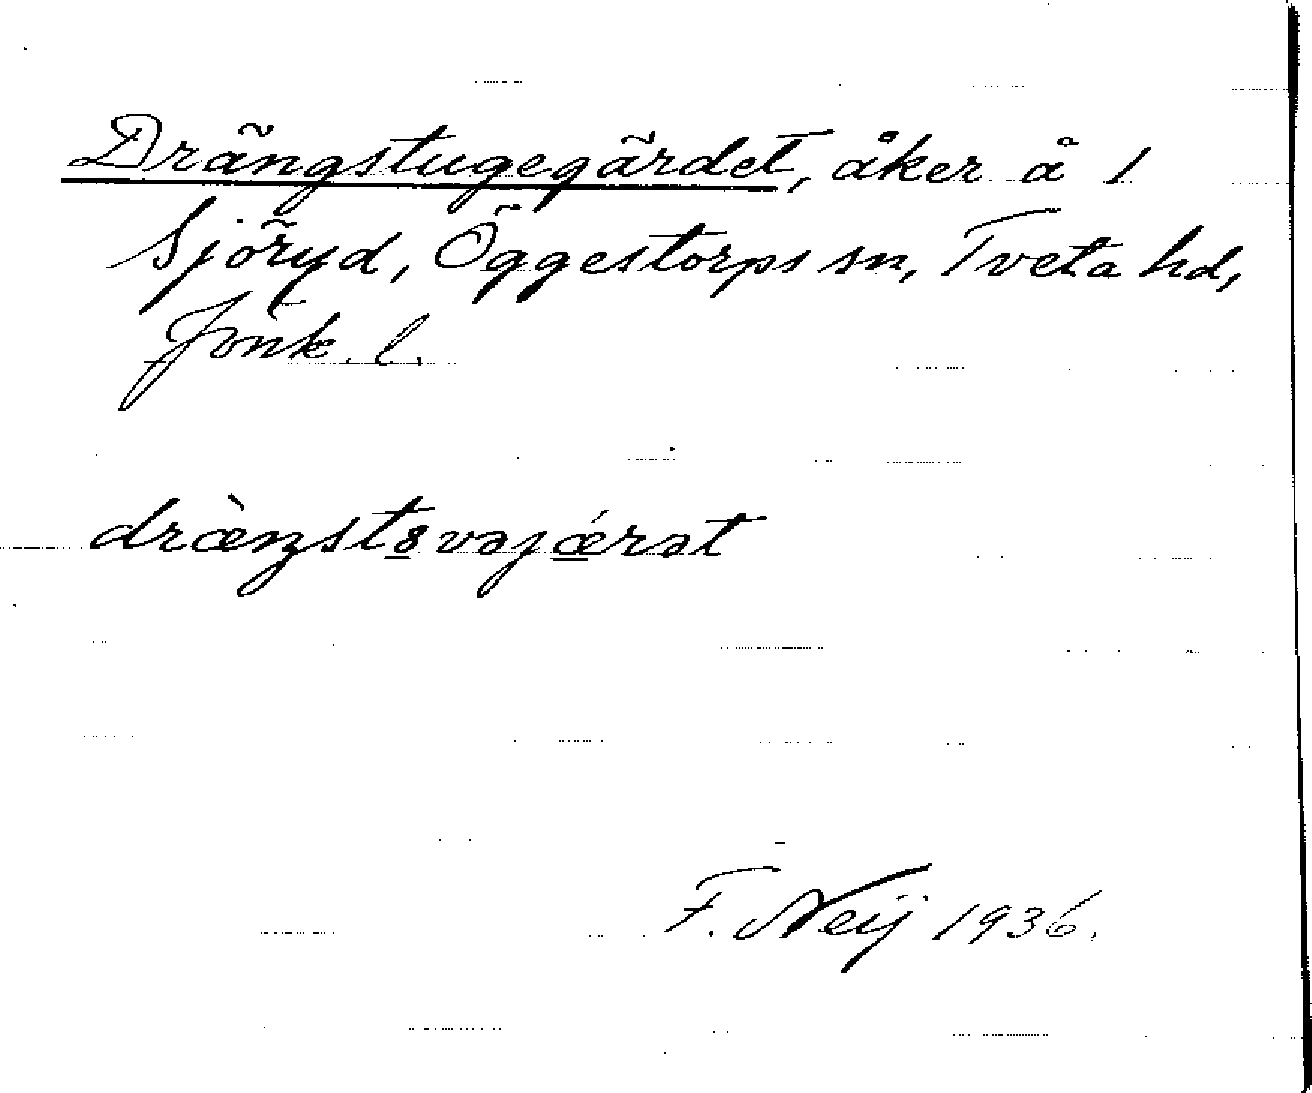 Drängstugegärdet, åker å 1
Sjöryd, Öggestorps sn, Tveta hd,
Jönk. l.
dræ̀ŋst8vəjǽrət
F. Neij 1936.